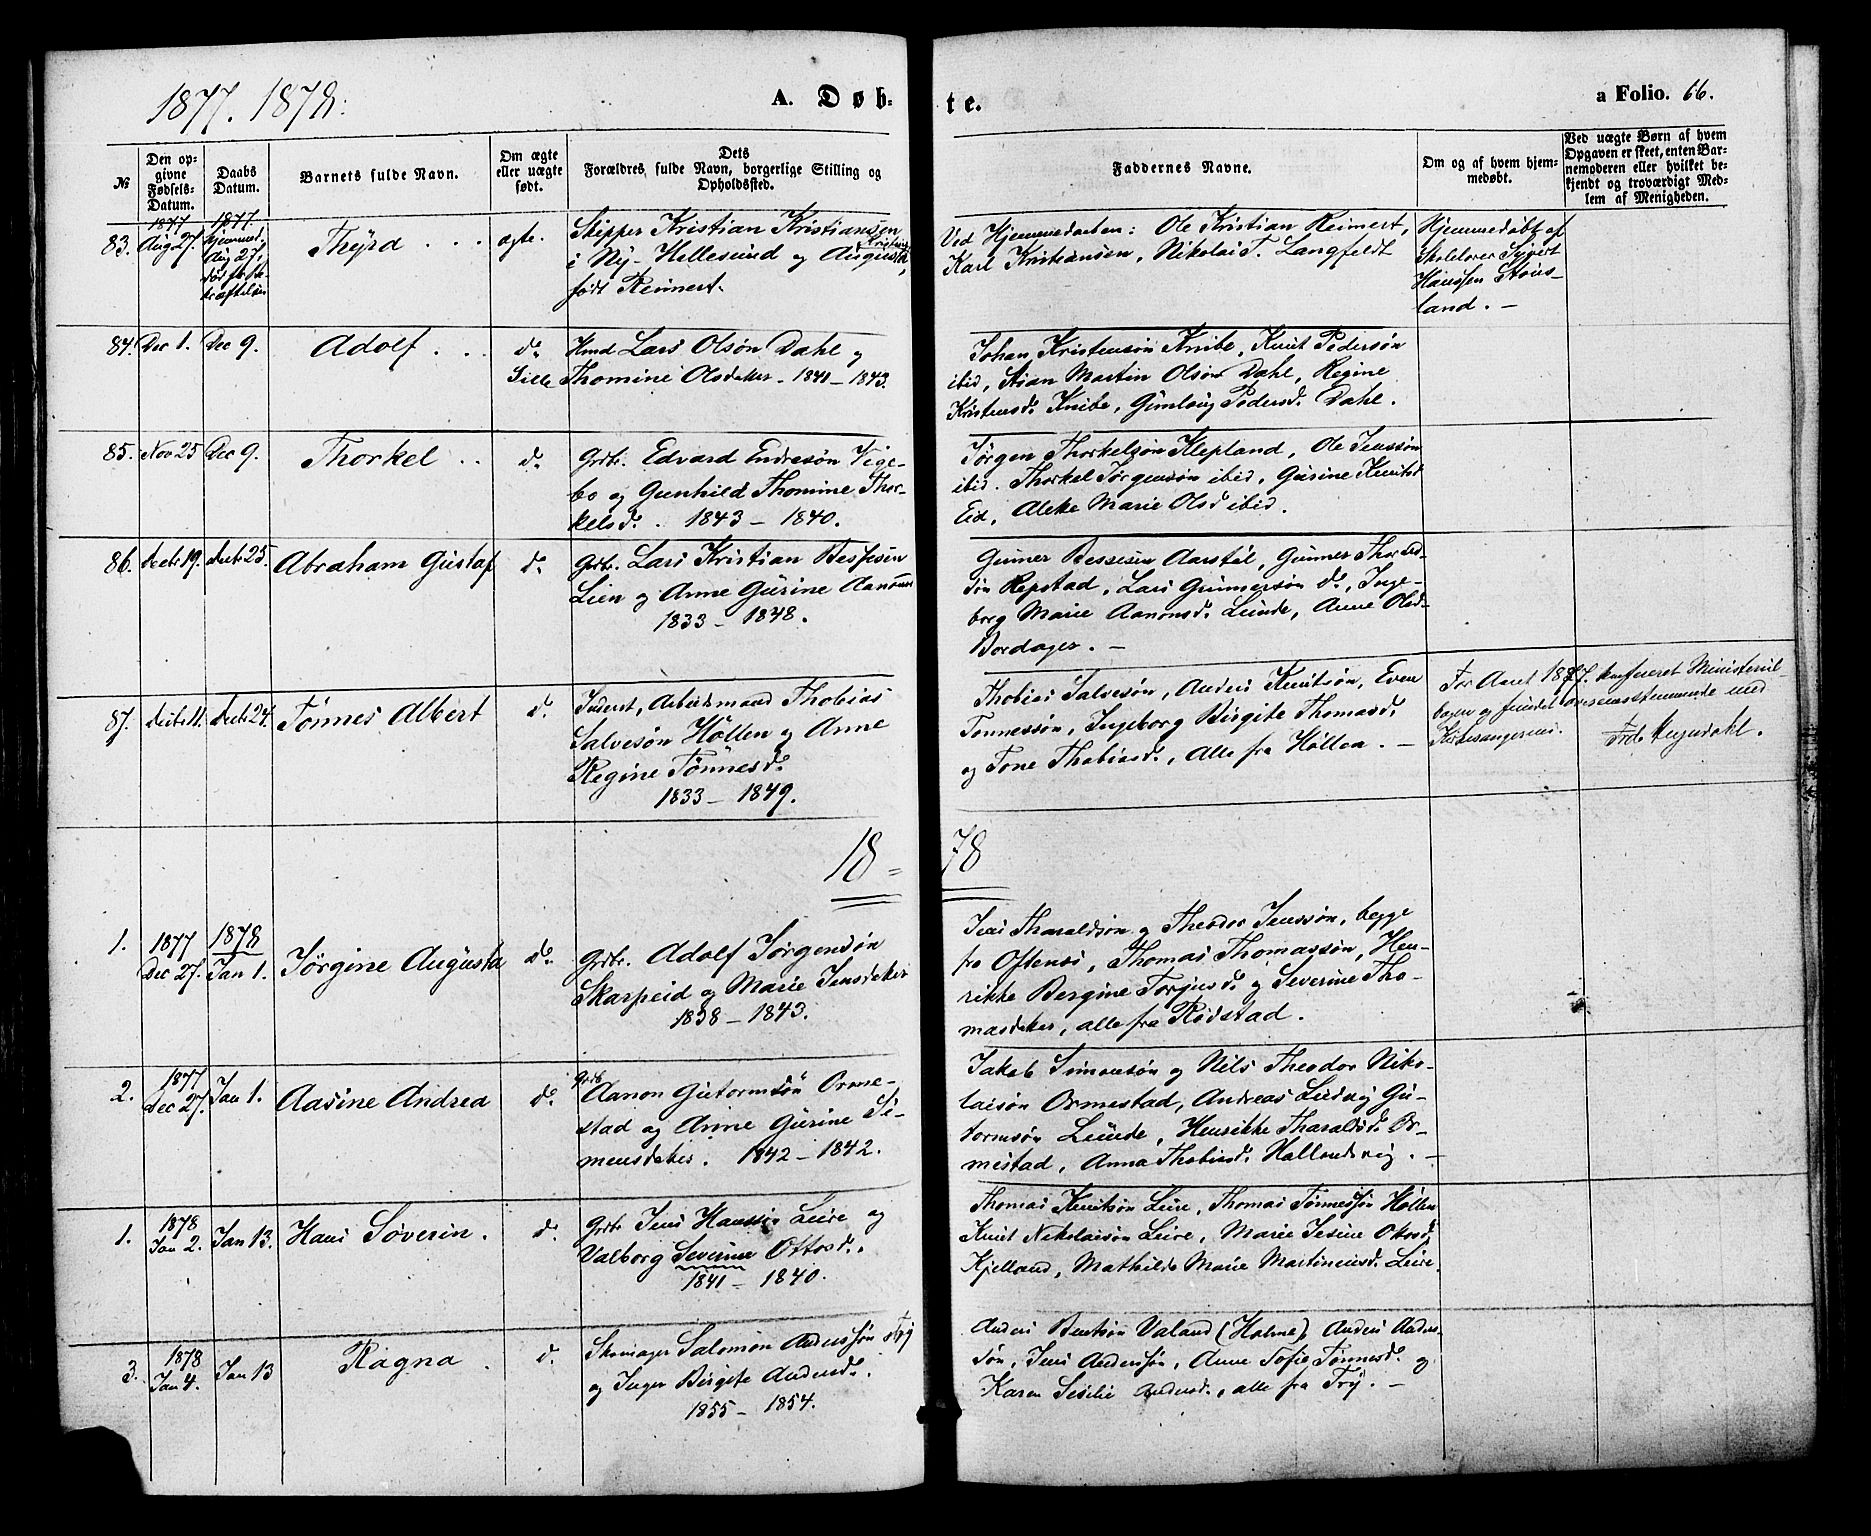 1877. 1878.
A. Døb-
te.
a Folio. 66.
№
Den op-
givne
Fødsels-
Datum.
Daabs
Datum.
Barnets fulde Navn.
Om ægte
eller uægte
født.
Dets
Forældres fulde Navn, borgerlige Stilling og
Opholdssted.
Faddernes Navne.
Om og af hvem hjem-
medøbt.
Ved uægte Børn af hvem
Opgaven er skeet, enten Bar-
nemoderen eller hvilket be-
kjendt og troværdigt Med-
lem af Menigheden.
83.
1877
Aug 27.
1877.
Hjemmed.
Aug 27,
Thyrd . . .
ægte.
Skipper Kristian Kristiansen
i Ny-Hellesund og Augusta,
født Reinert.
Ved Hjemmedaaben: Ole Kristian Reinert,
Karl Kristiansen, Nikolai T. Langfeldt
Hjemmedøbt af
Skolelærer Sivert
Hanssen Støus-
land. —
84.
Dec 1.
Dec 9.
Adolf . . .
do.
Lille
Hmd Lars Olsøn Dahl og
Thomine Olsdatter. 1841 – 1843.
Johan Kristensøn Knibe, Knut Pedersøn
ibid, Stian Martin Olsøn Dahl, Regine
Kristensd. Knibe, Gunlaug Pedersd. Dahl.
85.
Nov 25
Dec 9.
Thorkel . .
do.
Grbr. Edvard Endresøn Vige-
bo og Gunhild Thomine Thor-
kelsd. . 1843 – 1840.
Jørgen Thorkelsøn Klepland, Ole Jenssøn
ibid. Thorkel Jørgensøn ibid, Gusine Knutsd
Eid, Aleke Marie Olsd ibid.
86.
Decbr 19.
Decbr 25.
Abraham Gustaf
do.
Grbr. Lars Kristian Bessesen
Lien og Anne Gurine Aanons
1833 – 1848.
Gunner Bessesen Aarstøl, Gunner Thords-
søn Repstad, Lars Gunnersøn do, Inge-
borg Marie Aanonsd. Lunde, Anne Olsd-
Bordager. —
87.
Decbr 11.
Decbr 24.
Tønnes Albert
do.
Inderst, Arbeidsmand Thobias
Salvesøn Høllen og Anne
Regine Tønnesd.
1833 – 1849.
Thobias Salvesøn, Anders Knutsøn, Even
Tønnessøn, Ingeborg Birgite Thomasd.
og Tone Thobiasd., alle fra Høllen. —
For Aaret 1877. konfereret Ministerial-
bogen og fundet overensstemmende med
Kirkesangerens.
Fr. Heyerdahl.
18 =
78
1.
1877
Dec 27.
1878
Jan 1.
Jørgine Augusta
do.
Grbr. Adolf Jørgensøn
Skarpeid og Marie Jensdatter
1838 – 1843.
Jens Tharaldsøn og Theodor Jenssøn, begge
fra Oftenes, Thomas Thomassøn, Hen-
rikke Bergine Torjusd. og Severine Tho-
masdatter, alle fra Rødstad.
2.
1877
Dec 27.
Jan 1.
Aasine Andrea
do.
Grbr
Aanon Gutormsøn Orme-
stad og Anne Gurine Si-
mensdatter. 1842 – 1842.
Jakob Simonsøn og Nils Theodor Niko-
laisøn Ormestad, Andreas Ludvig Gu-
tormsøn Lunde, Henrikke Tharalsd. Or-
mestad, Anna Thobiasd. Hallandsvig. —
1.
1878
Jan 2.
Jan 13.
Hans Søverin.
do.
Grbr Jens Hanssen Leire og
Valborg Severine Ottosd.
1841 – 1840.
Thomas Knutsøn Leire, Thomas Tønnessøn Høllen
Knut Nikolaisøn Leire, Marie Jesine Ottosd.
Kjelland, Mathilde Marie Martiniusd. Leire.
3.
1878
Jan 4.
Jan 13
Ragna .
do.
Skomager Salomon Anderssøn Try
og Inger Birgite Andersd.
1855 – 1854.
Anders Bentsøn Valand (Holme), Anders Anders-
søn, Jens Anderssøn, Anne Sofie Tønnesd. og
Karen Sesilie Andersd., alle fra Try. —